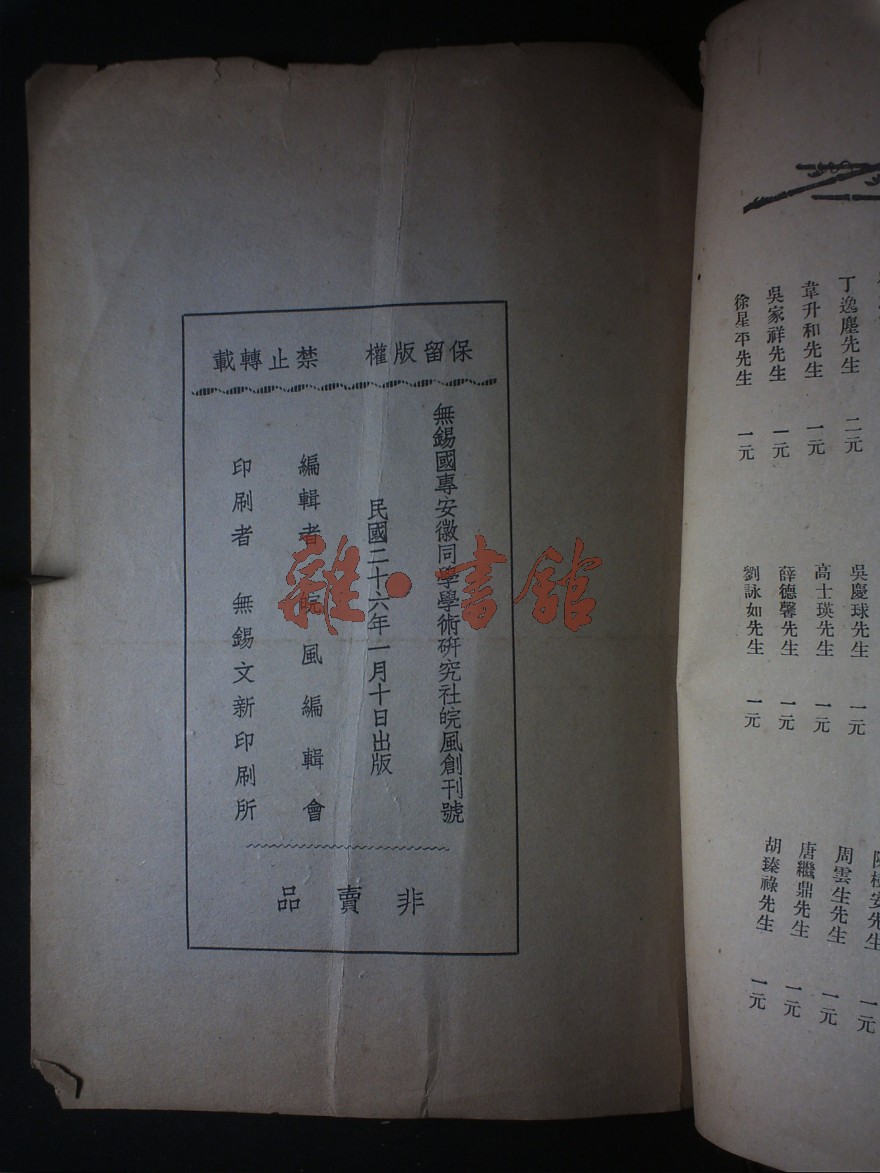 丁逸塵先生 二元
韋升和先生 一元
吳家祥先生 一元
徐星平先生 一元
吳慶球先生 一元
高士瑛先生 一元
薛德馨先生 一元
劉詠如先生 一元
周雲生先生 一元
唐繼鼎先生 一元
胡臻祿先生 一元
保留版權 禁止轉載
無錫國專安徽同學學術研究社皖風創刊號
民國二十六年一月十日出版
編輯者 皖風編輯會
印刷者 無錫文新印刷所
非賣品
雜·書館